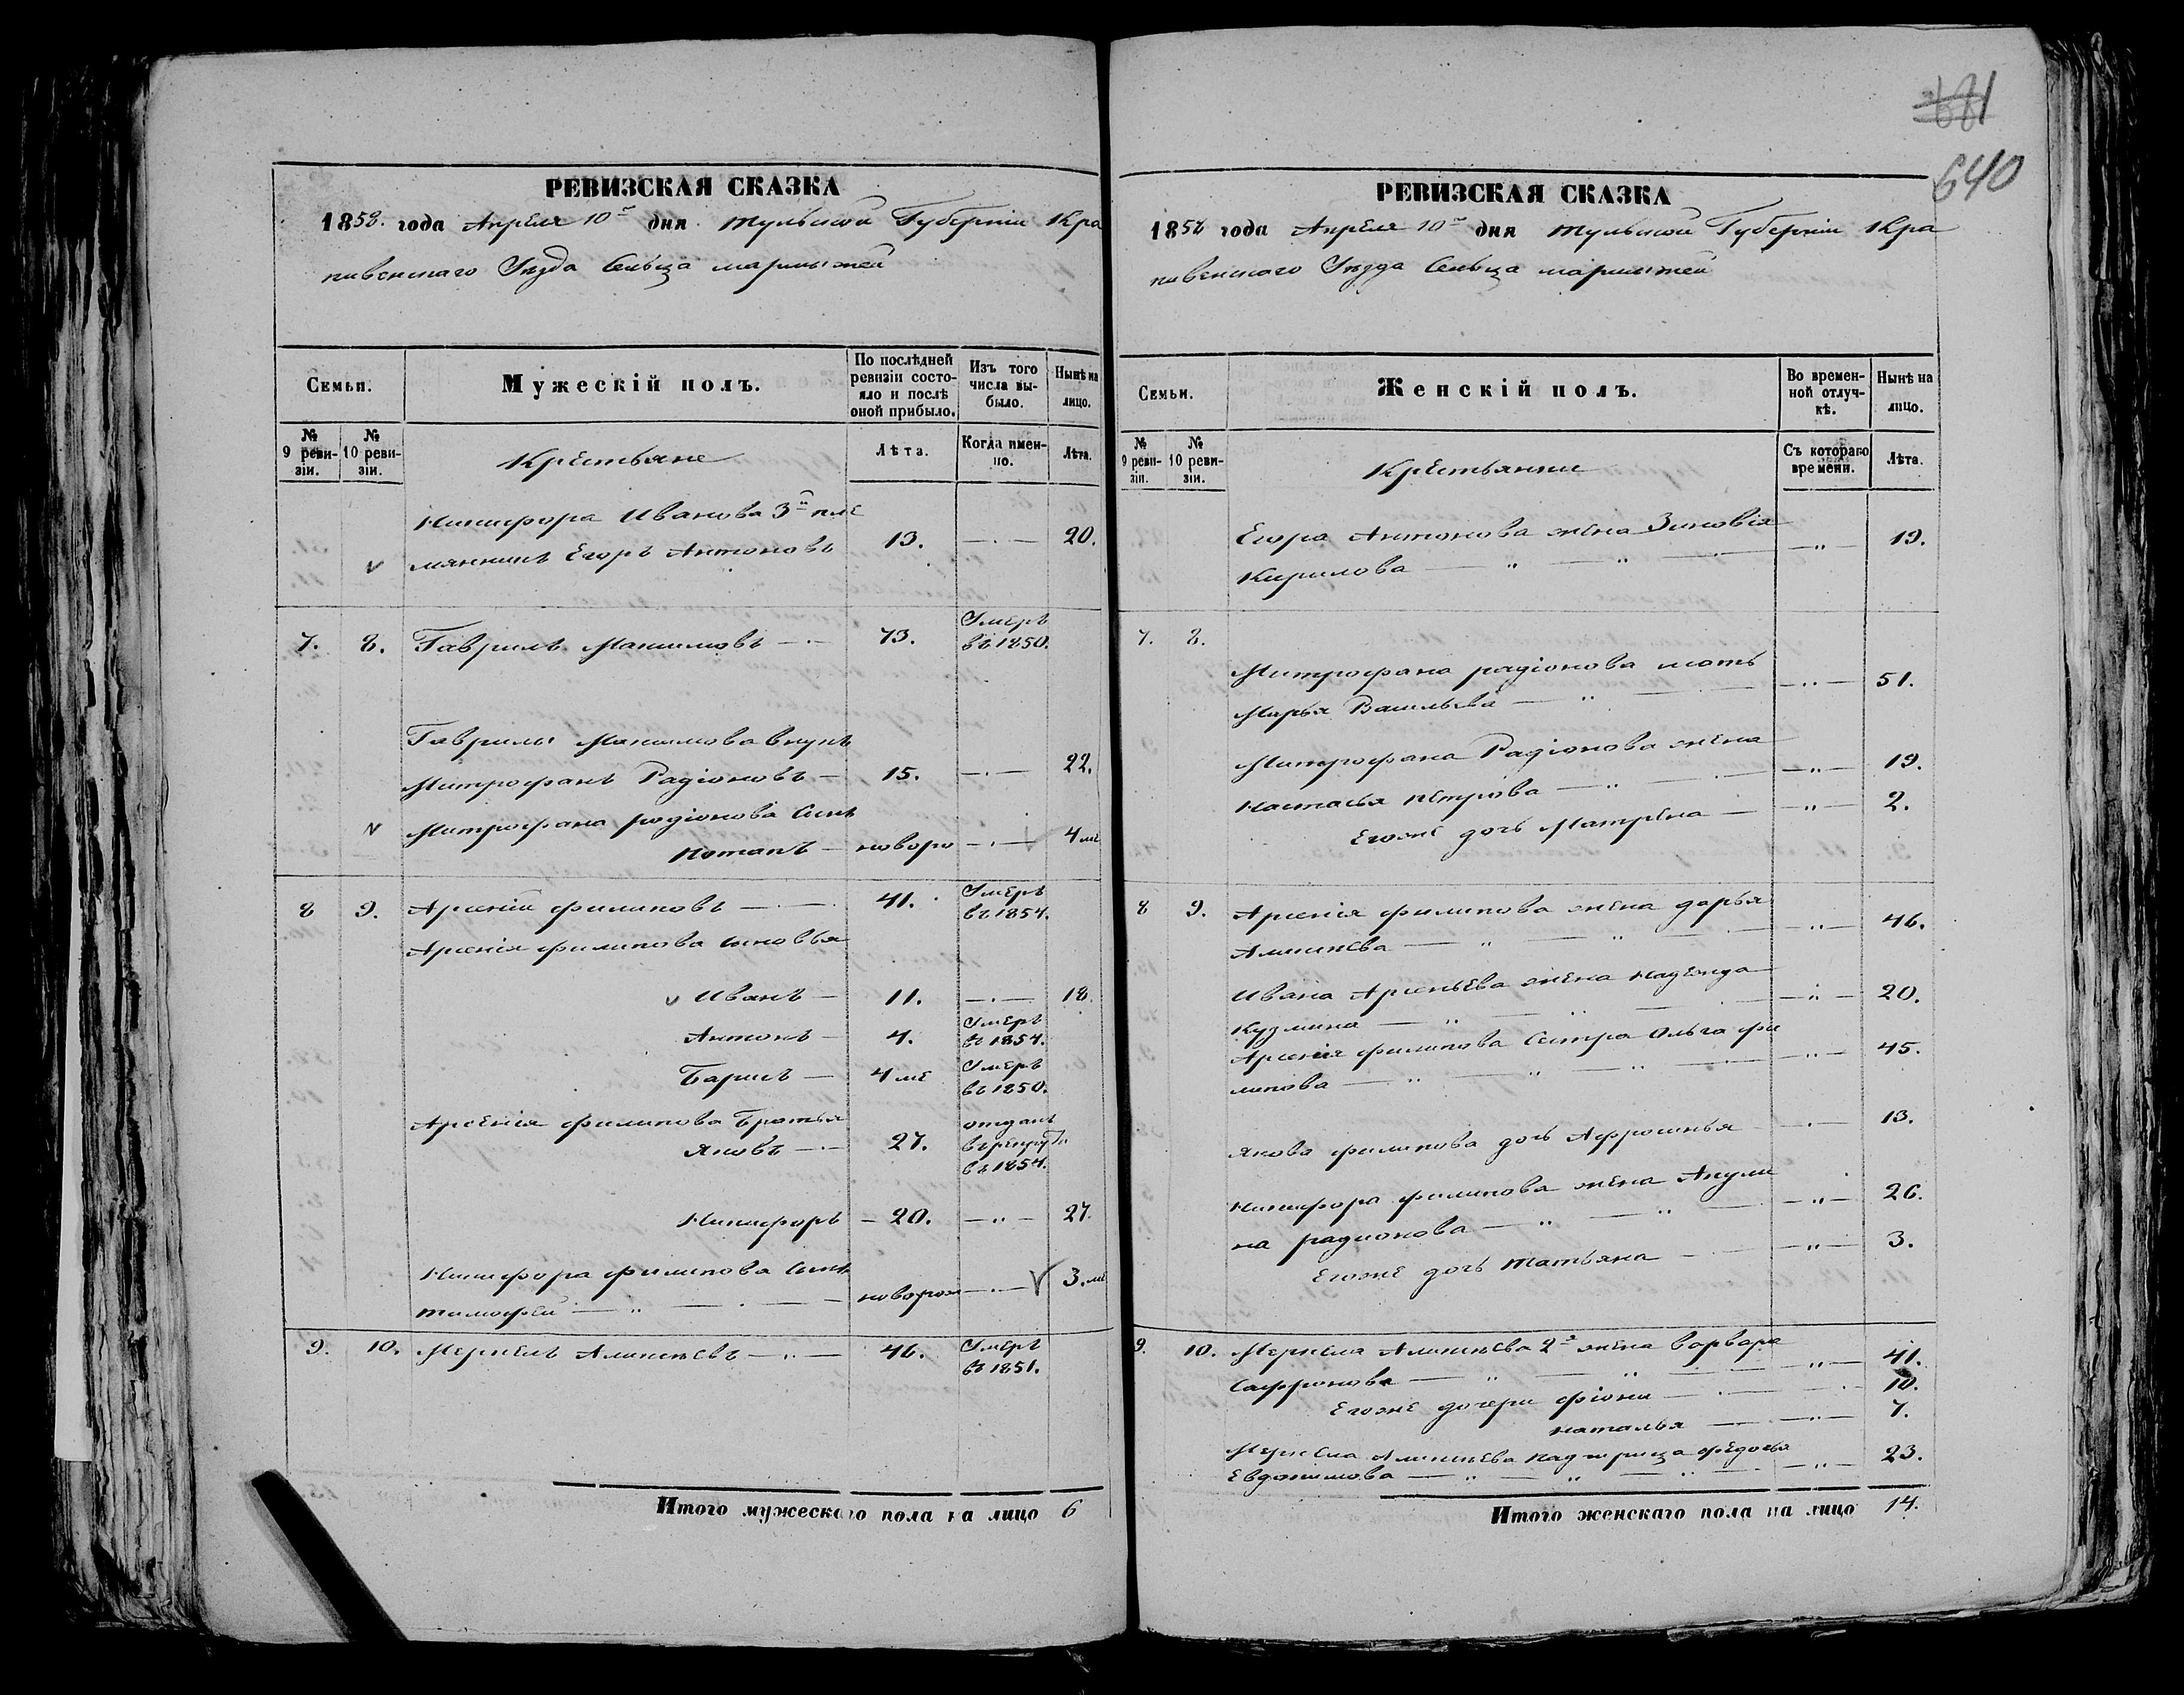 681
640
РЕВИЗСКАЯ СКАЗКА
1858. года Апреля 10го дня Тульской Губернии Кра
пивенскаго Уезда Сельца
Семьи.
Мужескій полъ.
По послѣдней ревизіи состояло и послѣ оной прибыло.
Изъ того числа выбыло.
Нынѣ на лицо.
№ 9 ревизіи.
№ 10 ревизіи.
Крестьяне
Лѣта.
Когда именно.
Лѣта.
Никифора Иванова 3й пле
мянникъ Егоръ Антоновъ 13. —·— 20.
7. 8. Гаврилъ Максимовъ —·— 73. Умеръ въ 1850.
Гаврилы Максимова внукъ
Митрофанъ Радіоновъ — 15. —·— 22.
Митрофана радіонова сынъ
Потапъ — новоро —·— 4 ме
8 9. Арсеній филиповъ —·— 41. Умеръ въ 1854.
Арсенія филипова сыновья
Иванъ — 11. —·— 18.
Антонъ — 4. Умеръ въ 1854.
Барисъ — 4 ме Умеръ въ 1850.
Арсенія филипова Братья
Яковъ —·— 27. отданъ в рекруты въ 1854.
Никифоръ — 20. —"— 27.
Никифора филипова сынъ
тимофей — " —·— новорож —·— 3. ме
9. 10. Меркелъ Алексѣевъ —"— 46. Умеръ въ 1851.
Итого мужескаго пола на лицо 6
РЕВИЗСКАЯ СКАЗКА
1858 года Апреля 10го дня Тульской Губернии Кра
пивенскаго Уезда Сельца
Семьи.
Женскій полъ.
Во временной отлучкѣ.
Нынѣ на лицо.
№ 9 ревизіи.
№ 10 ревизіи.
Крестьянки
Съ котораго времени.
Лѣта.
Егора Антонова жена Зиновія
Кирилова — " — " — —"— 19.
7. 8.
Митрофана радіонова мать
Марья Васильева — " — —"— 51.
Митрофана Радіонова жена
Настасья петрова — " — —"— 19.
Егоже дочь Матрена — —"— 2.
8 9. Арсенія филипова жена дарья
Алексѣева — " — " — —"— 46.
Ивана Арсеньева жена Надежда
Кузмина — " — " — —"— 20.
Арсенія филипова Сестра Ольга фи
липова — " — " — " — —"— 45.
Якова филипова дочь Афросинья —·— 13.
Никифора филипова жена Акули
на радионова — " — " — —"— 26.
Егоже дочь татьяна — —"— 3.
9. 10. Меркела Алексѣева 2я жена варвара
Сафронова — " — " — —"— 41.
Егоже дочери фіона — 10.
наталья — —"— 7.
Меркела Алексѣева падчерица федосья
Евдокимова — " — " — " — —"— 23.
Итого женскаго пола на лицо 14.